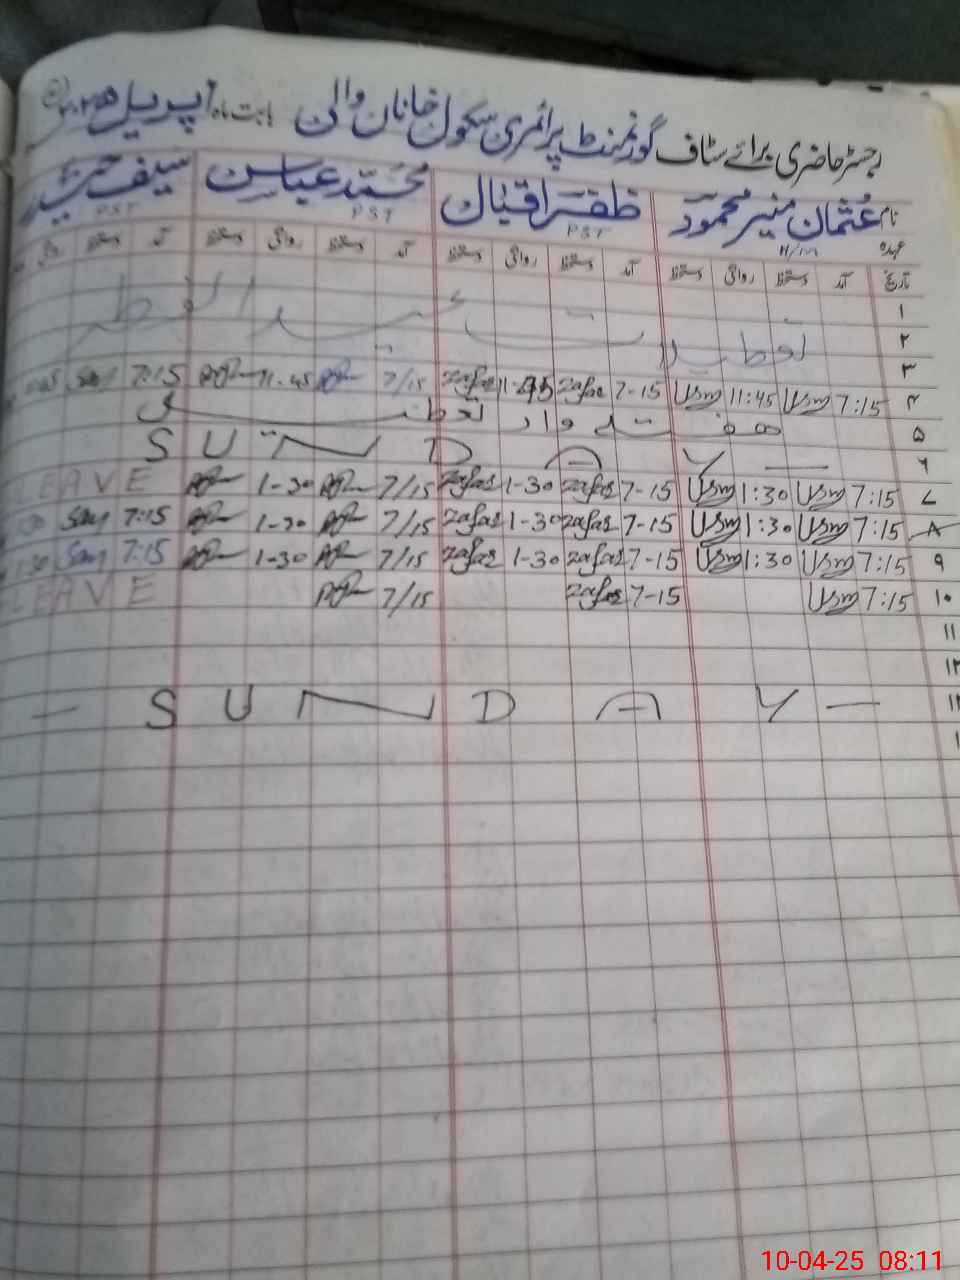 رجسٹر حاضری برائے سٹاف گورنمنٹ پرائمری سکول خاناں والی بابت ماہ اپریل
نام عثمان منیر محمود ظفر اقبال محمد عباس سیف
عہدہ H/M PST PST PST
تاریخ آمد دستخط روانگی دستخط آمد دستخط روانگی دستخط آمد دستخط روانگی دستخط آمد دستخط
۱
۲ تعطیل عید الفطر
۳
۴ 7:15 Usm 11:45 Usm 7-15 zafar 11-45 zafar 7/15 11-45 7:15
۵ ہفتہ وار تعطیل
۶ SUNDAY
۷ 7:15 Usm 1:30 Usm 7-15 zafar 1-30 zafar 7/15 1-30 LEAVE
۸ 7:15 Usm 1:30 Usm 7-15 zafar 1-30 zafar 7/15 1-30 7:15
۹ 7:15 Usm 1:30 Usm 7-15 zafar 1-30 zafar 7/15 1-30 7:15
۱۰ 7:15 Usm 7-15 zafar 7/15 LEAVE
۱۱
۱۲
— SUNDAY —
10-04-25 08:11